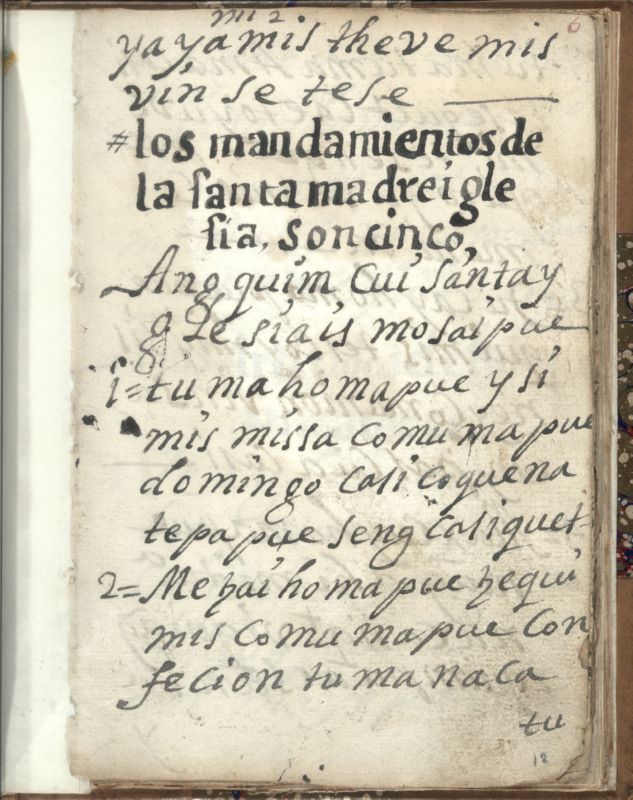 mi 2
6
yayamis theve mis
vin se tese
# los mandamientos de
la santa madre igle
sia, son cinco,
Ang quim Cui santa y
g le sia is mosai pue
1= tu ma homa pue y si
mis missa Comu ma pue
domingo Casi coquena
tepa pue seng Casi quet
2= Me hai homa pue hequi
mis Comu ma pue Con
fecion tu ma na ca
tu
12